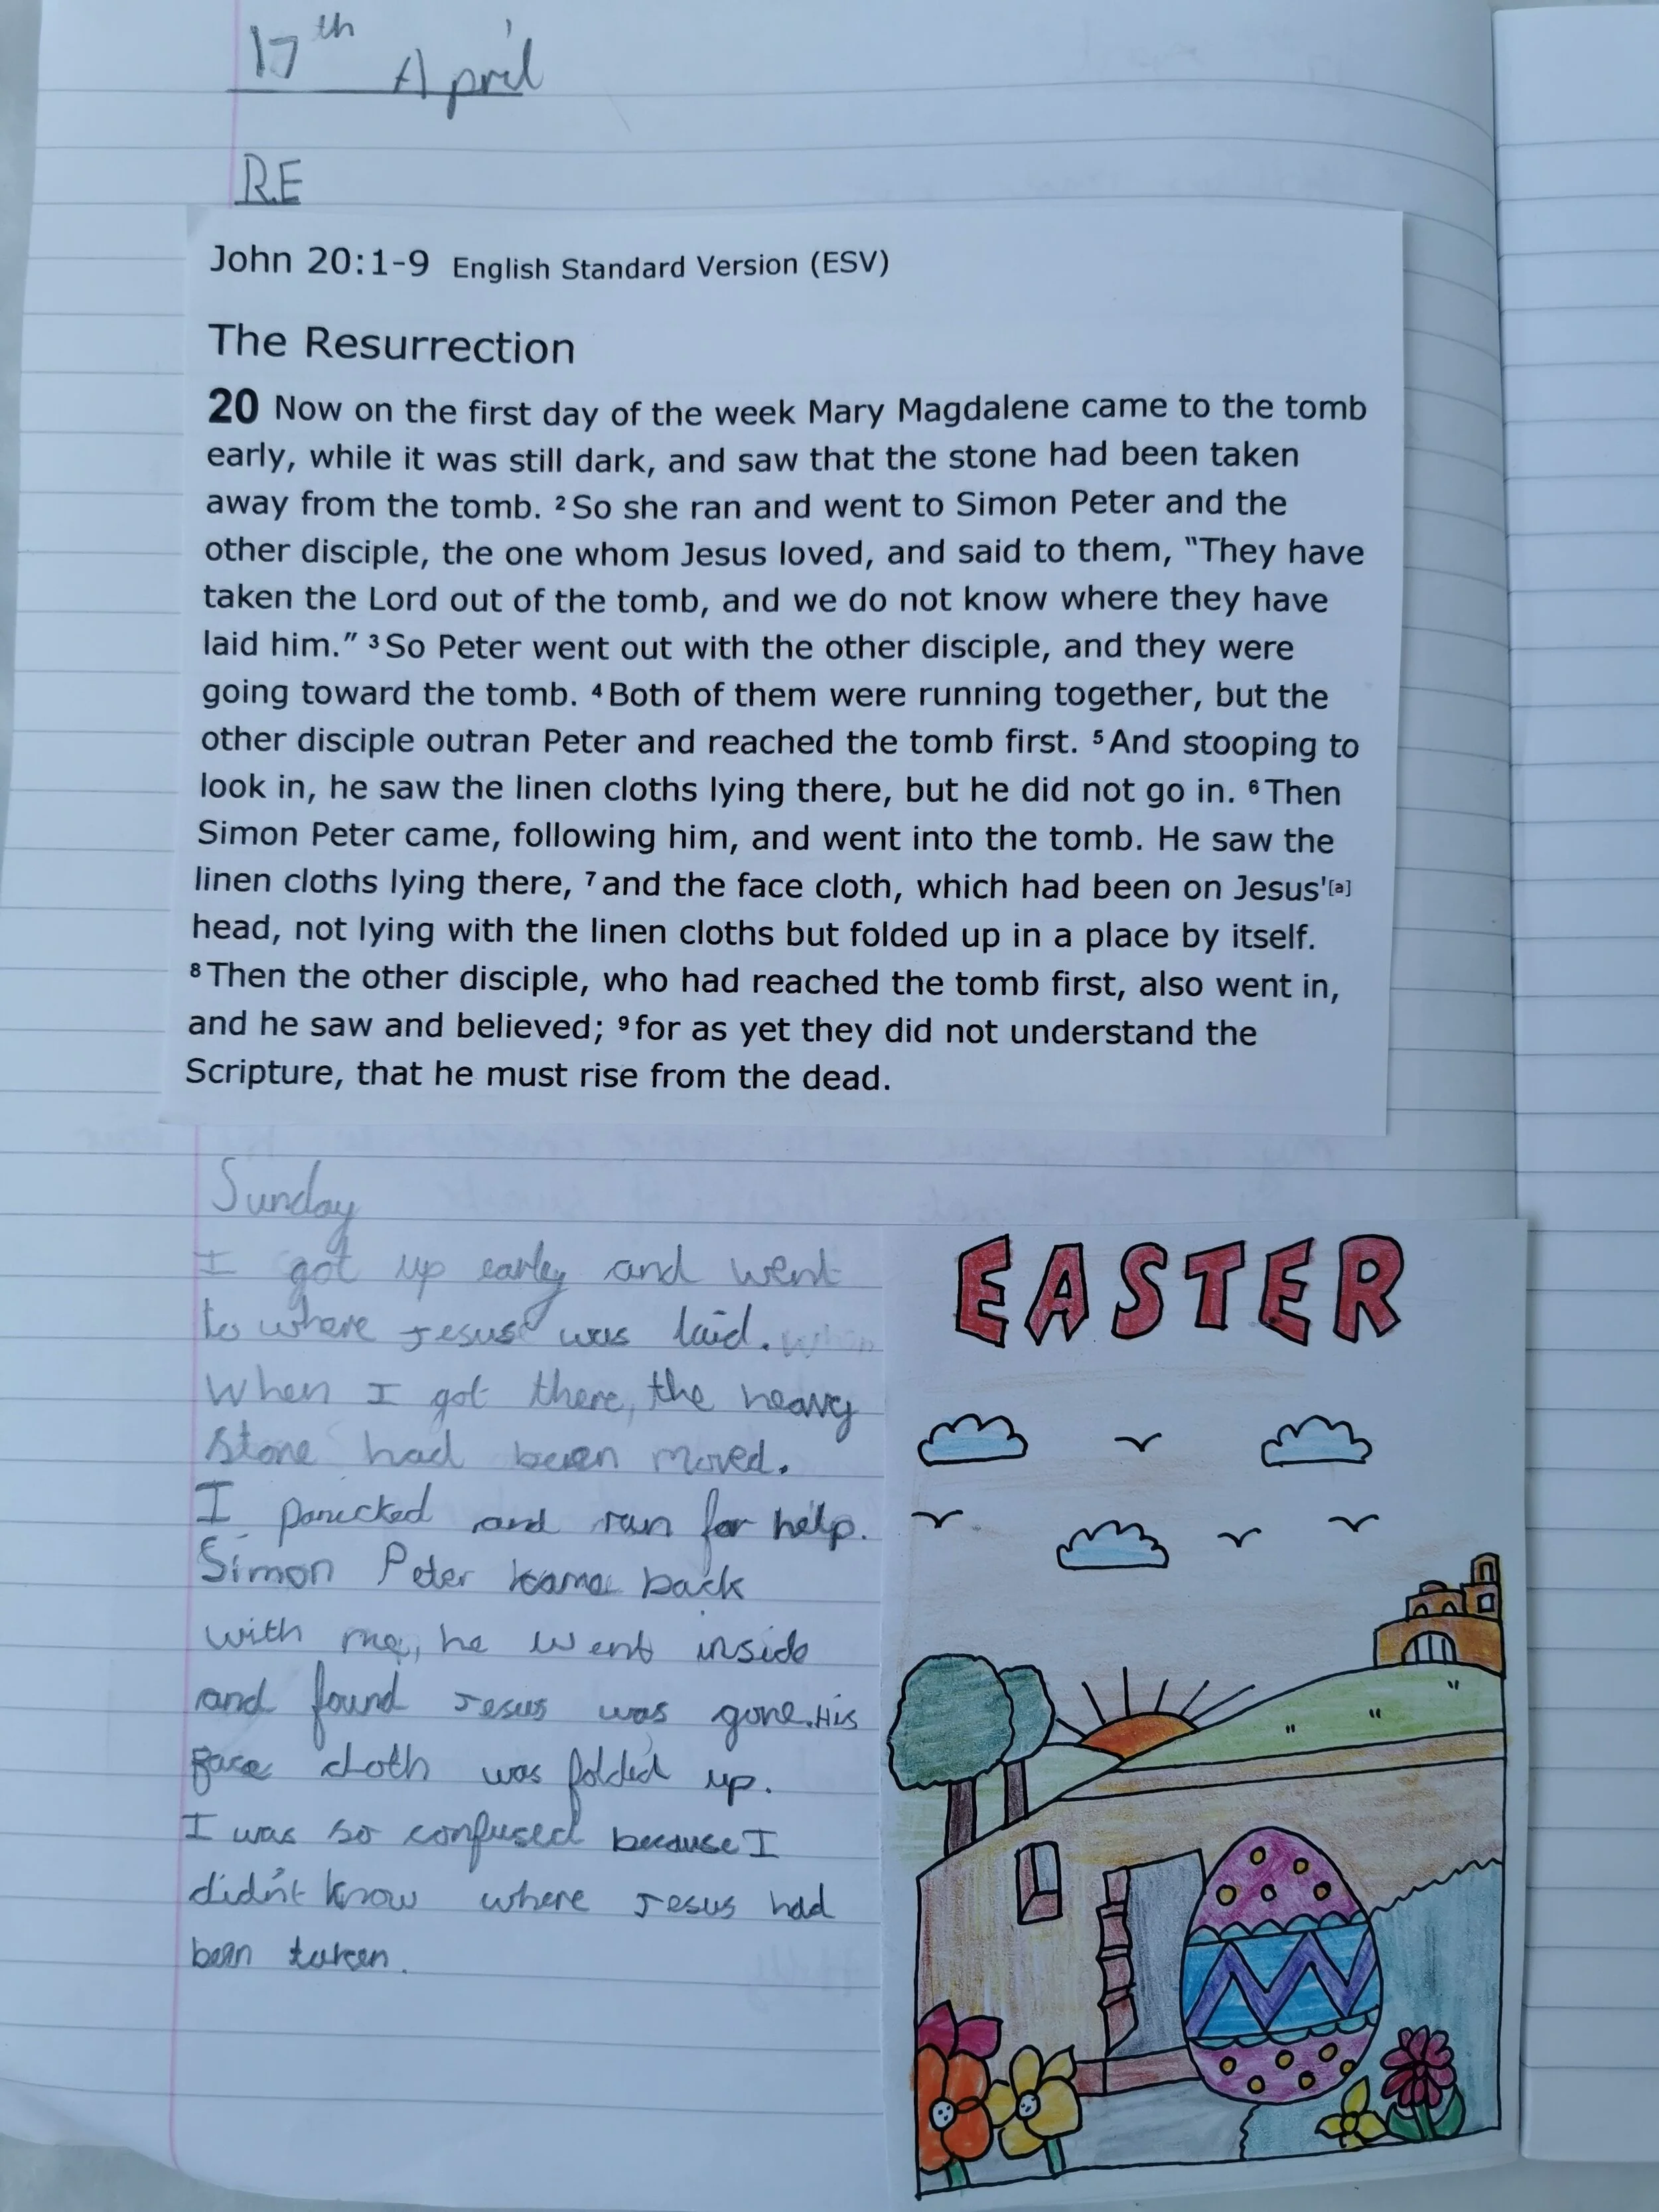 17th April
R.E
John 20:1-9 English Standard Version (ESV)
The Resurrection
20 Now on the first day of the week Mary Magdalene came to the tomb
early, while it was still dark, and saw that the stone had been taken
away from the tomb. 2 So she ran and went to Simon Peter and the
other disciple, the one whom Jesus loved, and said to them, “They have
taken the Lord out of the tomb, and we do not know where they have
laid him.” 3 So Peter went out with the other disciple, and they were
going toward the tomb. 4 Both of them were running together, but the
other disciple outran Peter and reached the tomb first. 5 And stooping to
look in, he saw the linen cloths lying there, but he did not go in. 6 Then
Simon Peter came, following him, and went into the tomb. He saw the
linen cloths lying there, 7 and the face cloth, which had been on Jesus'[a]
head, not lying with the linen cloths but folded up in a place by itself.
8 Then the other disciple, who had reached the tomb first, also went in,
and he saw and believed; 9 for as yet they did not understand the
Scripture, that he must rise from the dead.
Sunday
I got up earley and went
to where Jesus was laid.
When I got there, the heavy
stone had been moved.
I panicked and ran for help.
Simon Peter came back
with me, he went inside
and found Jesus was gone. His
face cloth was folded up.
I was so confused because I
didn't know where Jesus had
been taken.
EASTER